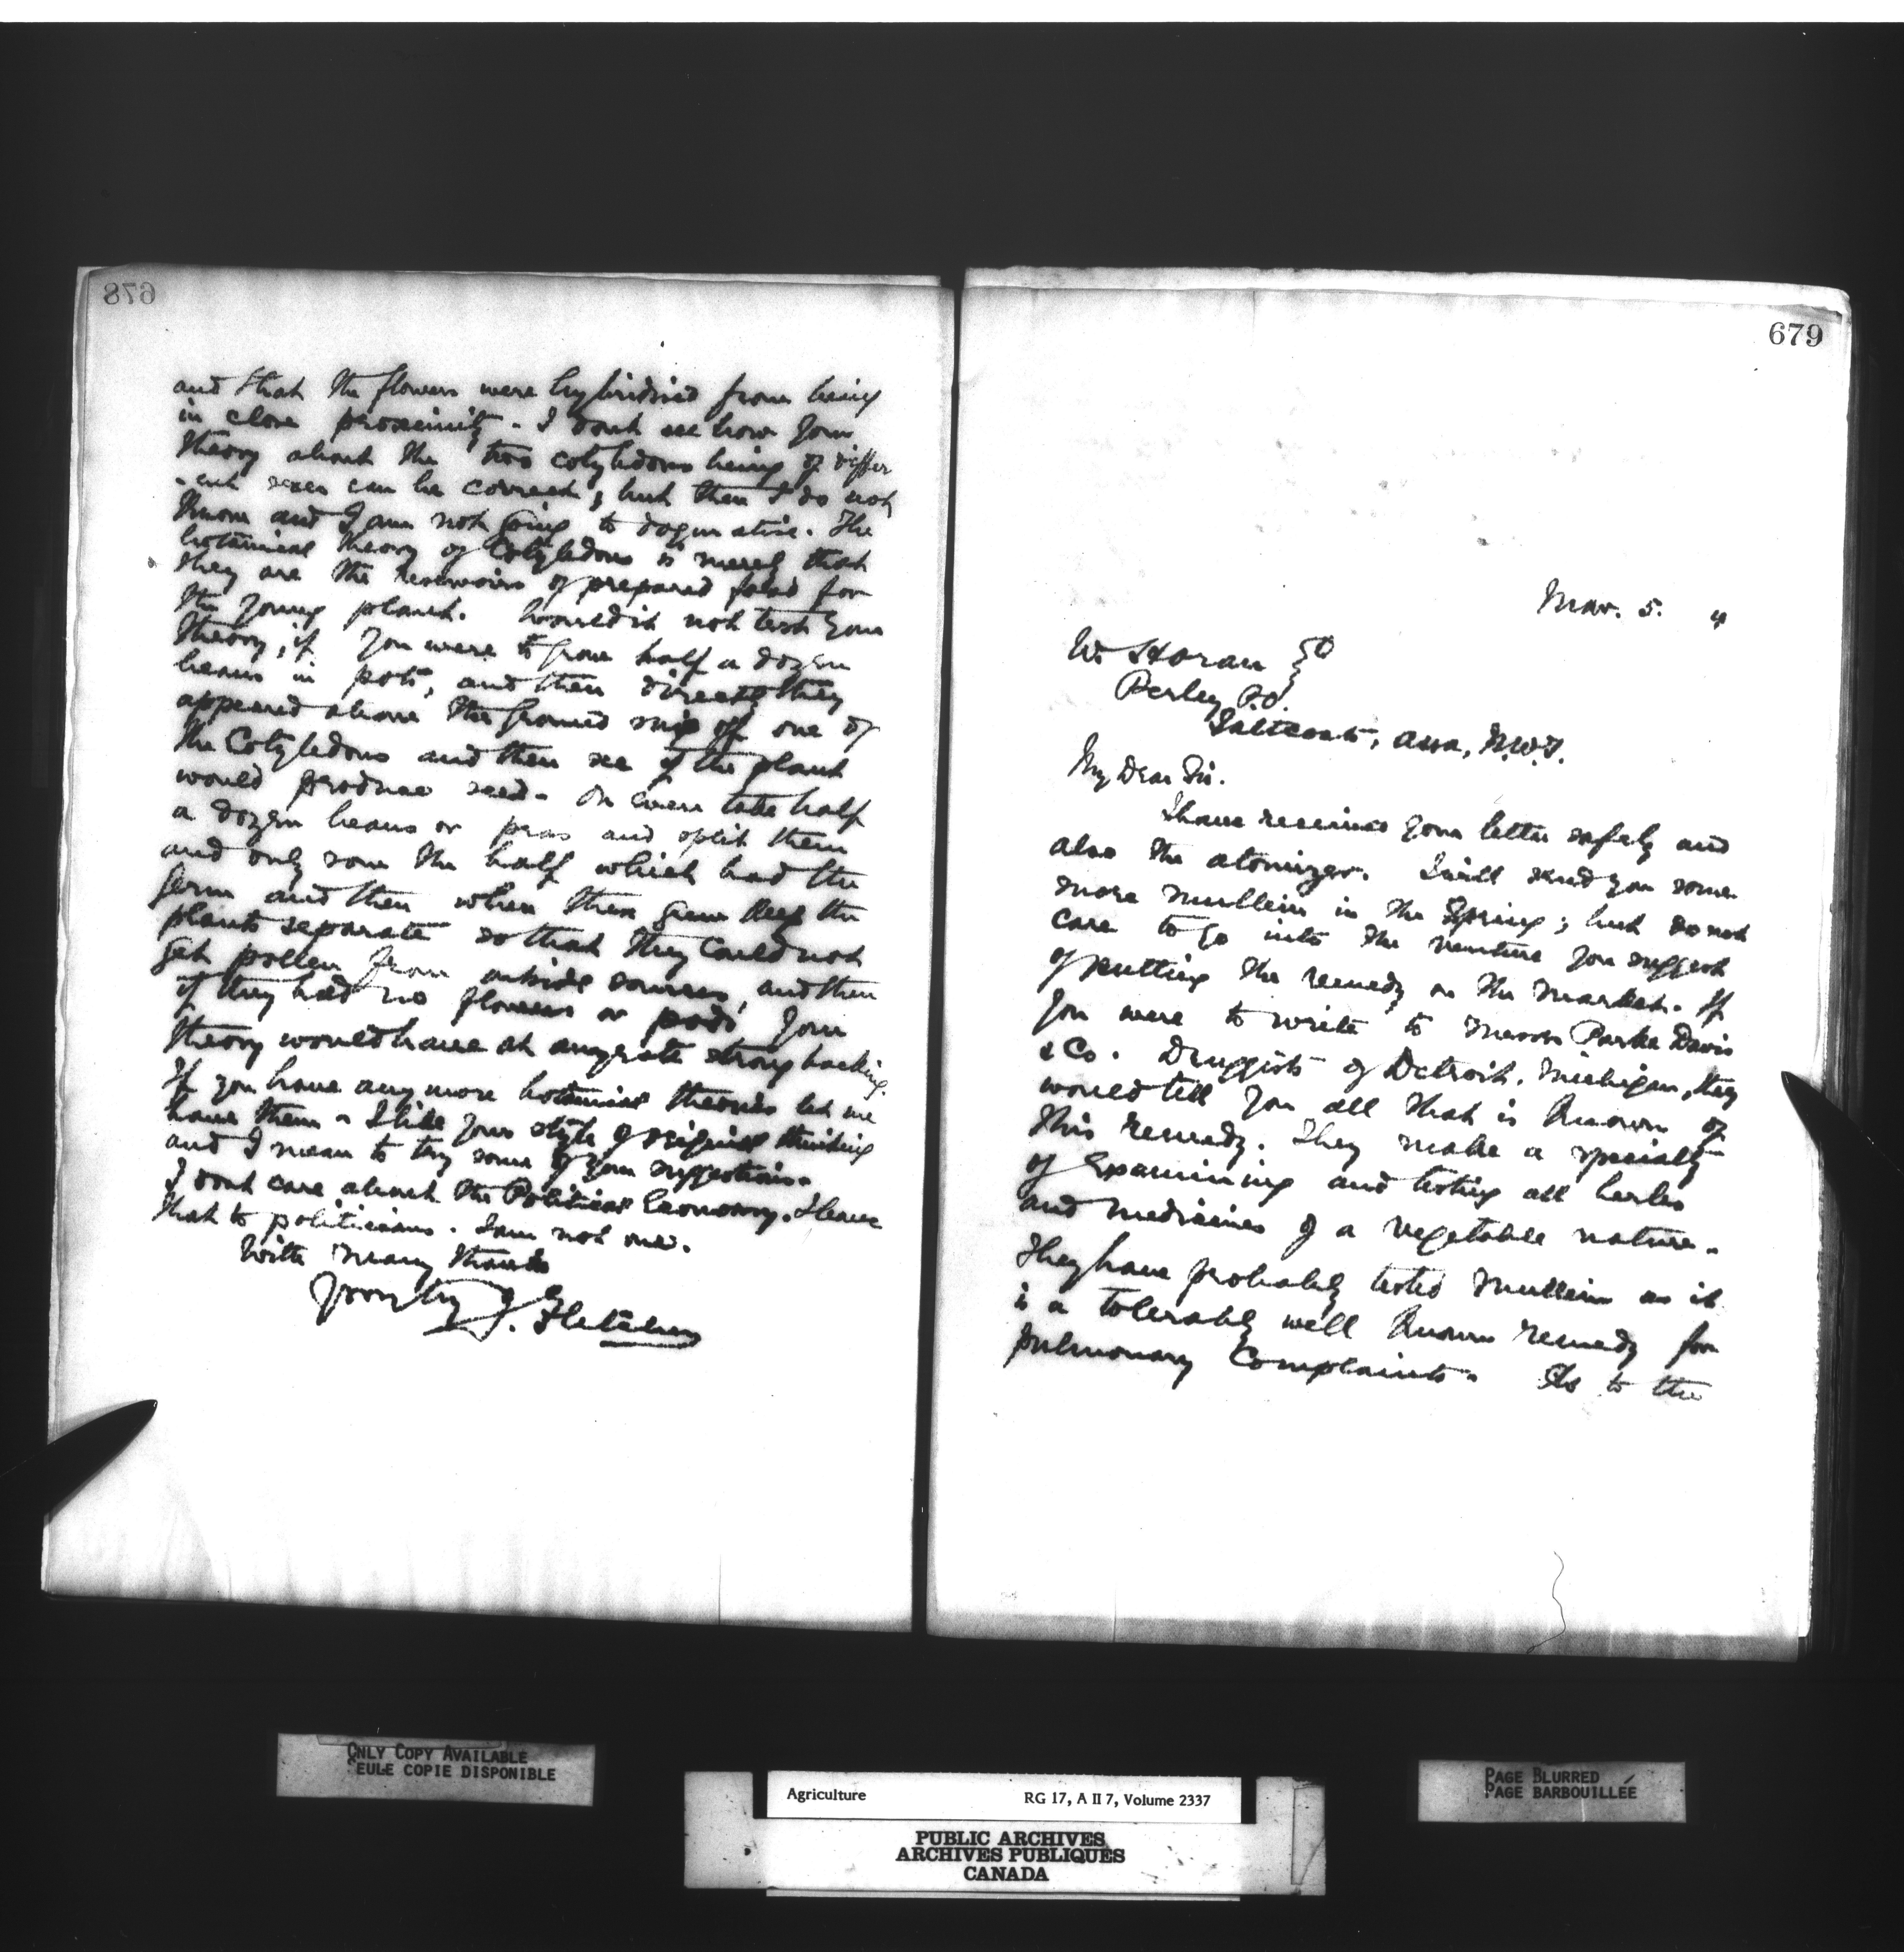 678
and that the flowers were hybridised from being
in close proximity. I dont see how your
theory about the two cotyledons being of differ
-ent sexes can be correct, but then I do not
know and I am not going to dogmatise. The
botanical theory of Cotyledons is merely that
they are the reservoirs of prepared food for
the young plant. Would it not test your
theory, if you were to grow half a dozen
beans in pots, and then directly they
appeared above the ground snip off one of
the Cotyledons and then see if the plant
would produce seed. Or even take half
a dozen beans or peas and split them
and only sow the half which had the
germ and then when these grew keep the
plants separate so that they could not
get pollen from outside sources, and then
if they had no flowers or pods your
theory would have at any rate strong backing.
If you have any more botanical theories let me
have them. I like your style of original thinking
and I mean to try some of your suggestions.
I dont care about the Political Economy. I leave
that to politicians. I am not one.
With many thanks
Yours try
J. Fletcher
679
Mar. 5. 4
W Horan
Perley P.O.
Saltcoats, Assa, N.W.T.
My Dear Sir.
I have received your letter safely and
also the atomizer. I will send you some
more mullein in the Spring; but do not
care to go into the venture you suggest
of putting the remedy on the market. If
you were to write to Messrs Parke Davis
& Co. Druggists of Detroit, Michigan, they
would tell you all that is known of
this remedy. They make a specialty
of Examining and testing all herbs
and medicines of a vegetable nature.
They have probably tested Mullein as it
is a tolerably well known remedy for
pulmonary Complaints. As to the
ONLY COPY AVAILABLE
SEULE COPIE DISPONIBLE
Agriculture RG 17, A II 7, Volume 2337
PUBLIC ARCHIVES
ARCHIVES PUBLIQUES
CANADA
PAGE BLURRED
PAGE BARBOUILLÉE